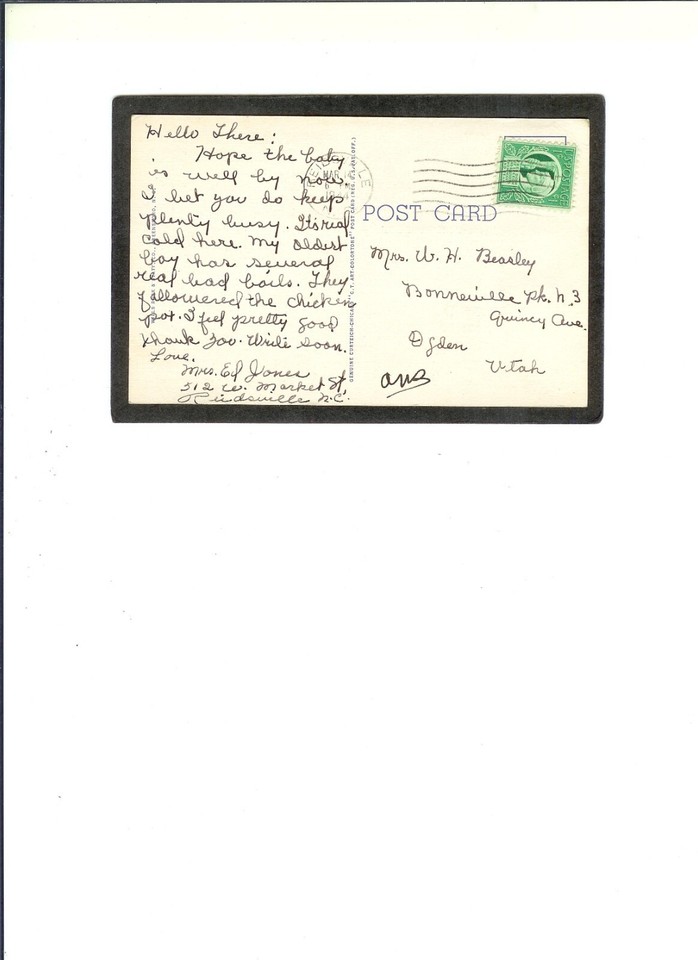 Hello There:
Hope the baby
is well by now.
I bet you do keep
plenty busy. Its real
cold here. My oldest
boy has several
real bad boils. They
followered the chicken
pox. I feel pretty good
thank you. Write soon.
Love,
Mrs. Ed Jones
512 W. Market St,
Reidsville N.C.
GENUINE CURTEICH-CHICAGO "C.T. ART-COLORTONE" POST CARD (REG. U.S. PAT. OFF.)
MAR
POST CARD
U.S. POSTAGE
Mrs. W. H. Beasley
Bonneville Pk. N. 3
Quincy Ave.
Ogden
Utah
ans